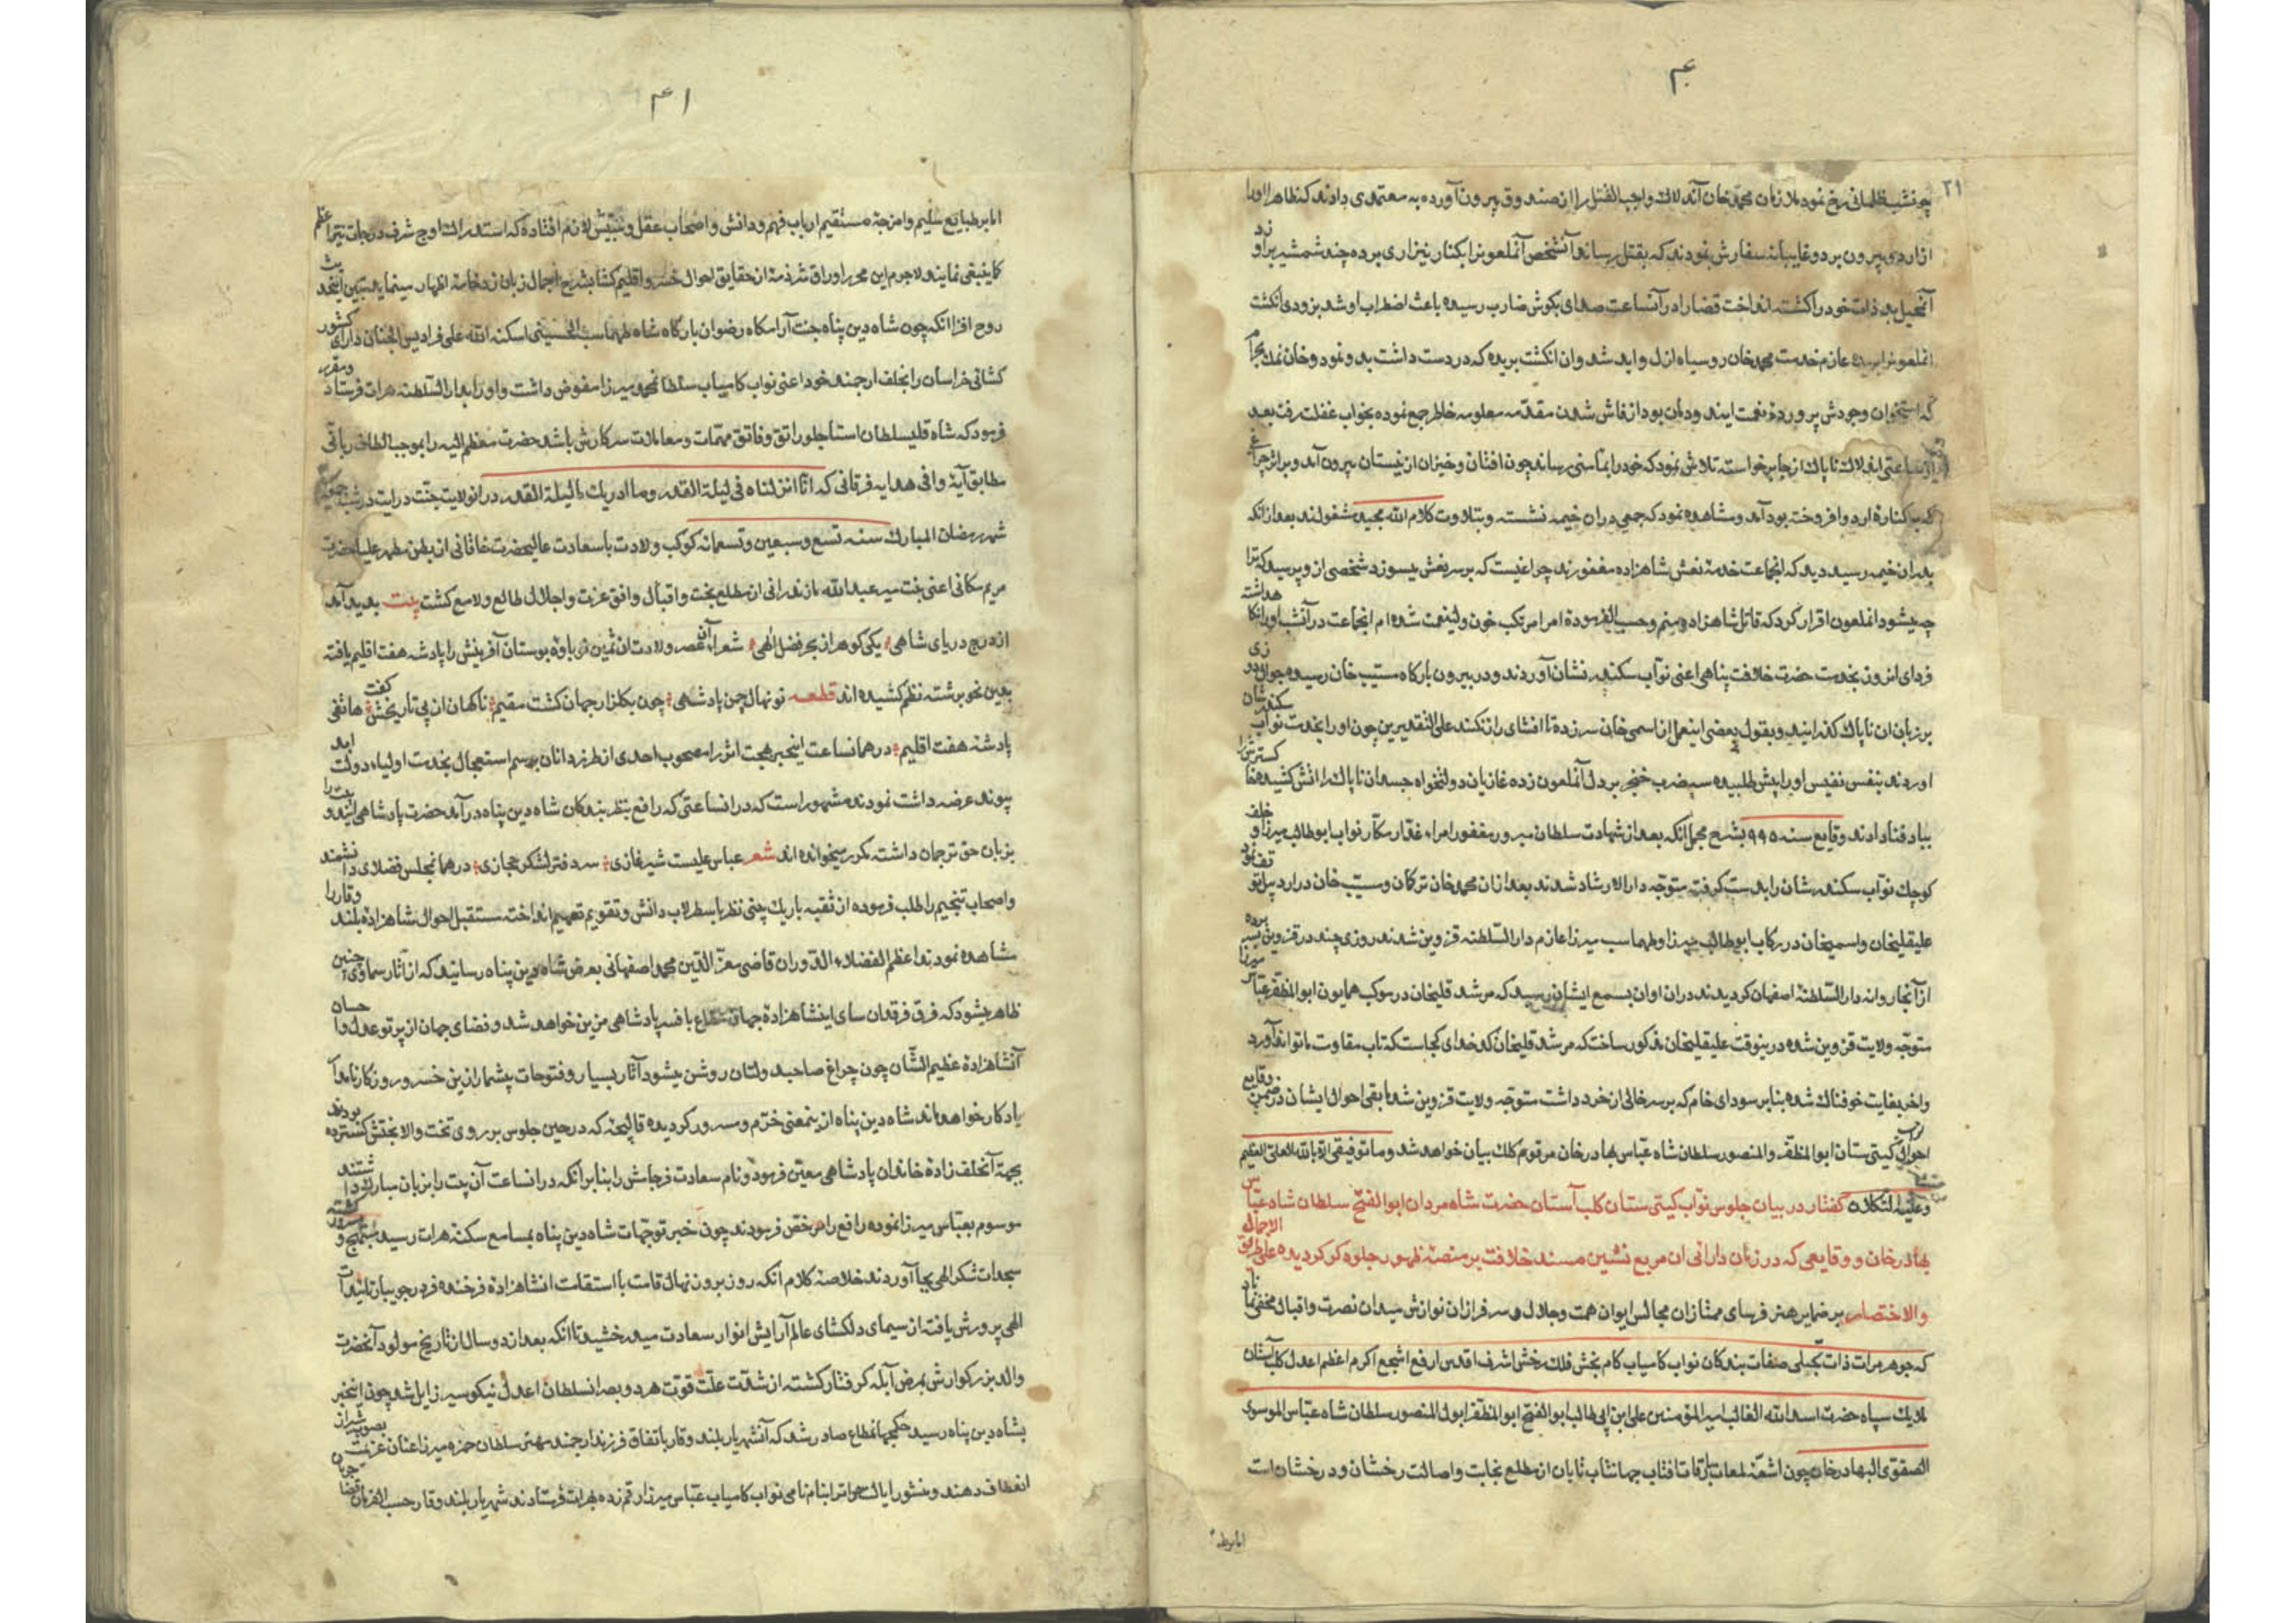 ۴۰
۲۱
چون شب ظلمانی رخ نمود ملازمان محمد خان آند لاك واجب القتل را از صندوق بیرون آورده به معتمدی دادند که ظاهرا او را
از اردوی بیرون برد و غایبانه سفارش نمودند که بقتل رساند آنشخص آنملعون را بکنار نیزاری برده چند شمشیر بر او زد
آنحیل بد ذات خود را کشته انداخت قضا را در آنساعت صدای بکوش ضارب رسیده باعث اضطراب او شد بزودی انکشت
انملعون را بریده عازم خدمت محمد خان روسیاه ازل و ابد شد وان انکشت بریده که در دست داشت بدو نمود و خان نمك بحرام
که استخوان وجودش پرورده نعمت ایند ودمان بود از فاش شدن مقدمه معلومه خاطر جمع نموده بخواب غفلت رفت بعد
از ساعتی اند لاك ناپاك از جا برخواسته تلاش نمود که خود را بمأمنی رساند چون افتان و خیزان از نیستان بیرون آمد و بر اثر چراغی
که بر کناره اردو افروخته بود آمد و مشاهده نمود که جمعی در ان خیمه نشسته و بتلاوت کلام الله مجید مشغولند بعد از انکه
بدر ان خیمه رسید دید که انجماعت خدمه نعش شاهزاده مغفورند چراغیست که بر سر نعش میسوزد شخصی از و پرسید که ترا
چه میشود انملعون اقرار کرد که قاتل شاهزاده منم وحسب الفرموده امرا مرتکب خون ولینعمت شده ام انجماعت در آنشب او را نکا هداشته
فردای انروز بخدمت حضرت خلافت پناهی اعنی نواب سکندر نشان آوردند و در بیرون بارکاه مستیب خان رسیده جوال دوزی
بر زبان ان ناپاك کذرانید و بقول بعضی اینعمل از اسمی خان سر زده تا افشای راز نکند علی التقدیرین چون او را بخدمت نواب سکندر شان
اوردند بنفس نفیس او را پیش طلبیده سه ضرب خنجر بر دل آنملعون زده غازیان دولتخواه جسد ان ناپاك را اتش کشیده خاکسترش را
بباد فنا دادند وقایع سنه ۹۹۵ بشرح مجمل انکه بعد از شهادت سلطان مبرور مغفور امراء غدار مکار نواب ابو طالب میرزا و خلف
کوچك نواب سکندر شان را بدست کرفته متوجه دار الارشاد شدند بعد از ان محمد خان ترکان و مسیب خان در اردبیل توقف نمود
علیقلیخان و اسمیخان در رکاب ابو طالب میرزا و طهماسب میرزا عازم دار السلطنه قزوین شدند روزی چند در قزوین بسر برده
از آنجا روانه دار السلطنه اصفهان کردیدند در ان اوان بسمع ایشان رسید که مرشد قلیخان در موکب همایون ابو المظفر عباس میرزا
متوجه ولایت قزوین شده در ینوقت علیقلیخان مذکور ساخت که مرشد قلیخان کدخدای کجاست که تاب مقاومت ما تواند آورد
واخر بغایت خوفناك شده بنا بر سودای خام که بر سر خالی از خرد داشت متوجه ولایت قزوین شد ما بقی احوال ایشان در ضمن وقایع
احوال نواب کیتی ستان ابو المظفر والمنصور سلطان شاه عباس بهادر خان مرقوم کلك بیان خواهد شد وما توفیقی الا بالله العلی العظیم
وعلیه التکلان کفتار در بیان جلوس نواب کیتی ستان کلب آستان حضرت شاه مردان ابو الفتح سلطان شاه عباس
بهادر خان و وقایعی که در زمان دارائی ان مربع نشین مسند خلافت بر منصه ظهور جلوه کر کردیده علی طریق الاجمال
والاختصار بر ضمایر هنر فرسای ممتازان مجالس ایوان همت و جلال و سرفرازان نوازش میدان نصرت و اقبال مخفی نماناد
که جوهر مرات ذات تجلی صفات بندکان نواب کامیاب کام بخش فلك رخش اشرف اقدس ارفع اشجع اکرم اعظم اعدل کلب آستان
ملایك سپاه حضرت اسد الله الغالب امیر المؤمنین علی ابن ابی طالب ابو الفتح ابو المظفر ابو المنصور سلطان شاه عباس الموسوی
الصفوی البهادر خان چون اشعه لمعات بارقات افتاب جهانتاب تابان از مطلع نجابت و اصالت رخشان و درخشان است
اما بر طبا
۴۱
اما بر طبایع سلیم و امزجه مستقیم ارباب فهم و دانش و اصحاب عقل و بینش لازم افتاده که استدراك اوج شرف درجات نیر اعظم
کما ینبغی نمایند لاجرم این محرر اوراق شرذمه از حقایق احوال خسرو اقلیم کشا بشرح اجمال زبان زد خامه اظهار مینماید تبیین اینحدیث
روح افزا انکه چون شاه دین پناه جنت آرامکاه رضوان بارکاه شاه طهماسب الحسینی اسکنه الله علی فرادیس الجنان دارای کشور
کشائی خراسان را بخلف ارجمند خود اعنی نواب کامیاب سلطان محمد میرزا مفوض داشت و او را بدار السلطنه هرات فرستاد و مقرر
فرمود که شاه قلیسلطان استاجلو راتق و فاتق مهمات و معاملات سرکارش باشد حضرت معظم الیه را بموجب الطاف ربانی
مطابق آیه وافی هدایه فرقانی که انا انزلناه فی لیلة القدر وما ادریك ما لیلة القدر در انولایت جنت درایت در شب
شهر رمضان المبارك سنه تسع وسبعین وتسعمائه کوکب ولادت با سعادت عالیحضرت خاقانی از بطن مطهر علیاحضرت
مریم مکانی اعنی بنت میر عبد الله مازندرانی از مطلع بخت و اقبال و افق عزت و اجلال طالع و لامع کشت بیت بدید آمد
از درج دریای شاهی یکی کوهر از بحر فضل الهی شعراء آنعصر ولادت ان ثمین نو باوه بوستان آفرینش را پادشه هفت اقلیم یافته
بدین نحو برشته نظم کشیده اند قطعه نو نهال چمن پادشهی چون بکلزار جهان کشت مقیم ناکهان از پی تاریخش کفت هاتفی
پادشه هفت اقلیم در همانساعت اینخبر بهجت اثر را مصحوب احدی از طرزدانان برسم استعجال بخدمت اولیاء دولت ابد
پیوند عرضه داشت نمودند مشهور است که در انساعتی که رافع بنظر بندکان شاه دین پناه در آمد حضرت پادشاهی اینبیت را
بزبان حق ترجمان داشته مکرر میخوانده اند شعر عباس علیست شیر غازی سر دفتر لشکر حجازی در همانمجلس فضلای دانشمند
و اصحاب تنجیم را طلب فرموده از ثقبه باریك بینی نظر باسطرلاب دانش و تقویم تفهیم انداخته مستقبل احوال شاهزاده بلند وقار را
مشاهده نمودند اعظم الفضلاء الدوران قاضی معز الدین محمد اصفهانی بعرض شاه دین پناه رسانید که از آثار سماوی چنین
ظاهر میشود که فرق فرقدان سای اینشاهزاده جهان مطاع بافسر پادشاهی مزین خواهد شد و فضای جهان از پرتو عدل و احسان
آنشاهزاده عظیم الشأن چون چراغ صاحبدولتان روشن میشود آثار بسیار و فتوحات بیشمار ازین خسرو روزکار نامدار
یادکار خواهد ماند شاه دین پناه از ینمعنی خرم و مسرور کردیده قالیچه که در حین جلوس بر روی تخت والا بختش کسترده بودند
بجهة آنخلف زاده خاندان پادشاهی معین فرمود و نام سعادت فرجامش را بنا بر انکه در انساعت آن بیت را بزبان مبارك داشتند
موسوم بعباس میرزا نموده رافع را مرخص فرمودند چون خبر توجهات شاه دین پناه بمسامع سکنه هرات رسید مبتهج و مسرور کشته
سجدات شکر الهی بجا آوردند خلاصه کلام انکه روز بروز نهال قامت با استقامت انشاهزاده فرخنده فر در جویبار تائیدات
الهی پرورش یافته از سیمای دلکشای عالم آرایش انوار سعادت میدرخشید تا انکه بعد از دو سال از تاریخ مولود آنحضرت
والد بزرکوارش بمرض آبله کرفتار کشته از شدت علت قوت هر دو بصر انسلطان اعدل نیکو سیر زایل شد چون اینخبر
بشاه دین پناه رسید حکم جهانمطاع صادر شد که آنشهریار بلند وقار باتفاق فرزند ارجمند مهتر سلطان حمزه میرزا عنان عزیمت بصوب شیراز
انعطاف دهند و منشور ایالت هرات را بنام نامی نواب کامیاب عباس میرزا رقم زده بهرات فرستادند شهریار بلند وقار حسب الفرمان قضا جریان